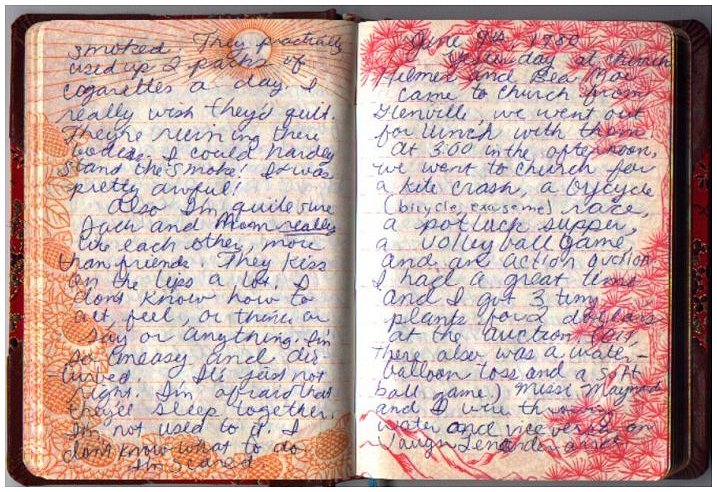 smoked. They practically
used up 2 packs of
cogarettes a day. I
really wish they'd quit.
They're ruining there
bodies. I could hardly
stand the smoke! It was
pretty awful!
Also I'm quite sure
Jack and Mom really
like each other, more
than friends. They kiss
on the lips a lot. I
dont know how to
act, feel, or think or
say or anything. I'm
so uneasy and dis-
turved. It's just not
right. I'm afraid that
they'll sleep together.
I'm not used to it. I
dont know what to do
I'm scared
June 9th, 1980
Yesterday at church
Hilmer and Bea Mae
came to church from
Glenville, we went out
for lunch with them.
At 3:00 in the afternoon,
we went to church for
a kite crash, a bycycle
(bicycle, excuse me) race,
a potluck supper,
a volleyball game
and an action auction.
I had a great time
and I got 3 tiny
plants for 2 dollars
at the auction.
there also was a water-
balloon toss and a soft
ball game.) Missi Maynard
and I were throwing
water and vice versa on